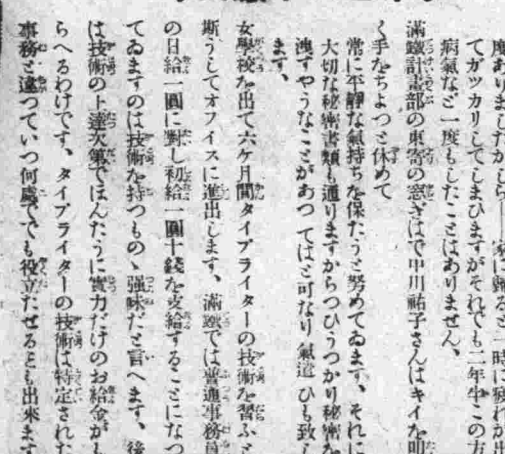 度ありましたかしら――家に歸ると一時に疲れが出
てガツカリしてしまひますがそれでも二年半この方
病氣など一度もしたことはありません、
滿鐵計畫部の東寄の窓ぎはで中川祐子さんはキイを叩
く手をちよつと休めて
常に平靜な氣持ちを保たうと努めてゐます、それに
大切な秘密書類も通りますからつひうつかり秘密を
洩すやうなことがあつてはと可なり氣遣ひも致し
ます、
女學校を出て六ケ月間タイプライターの技術を習ふと
斯うしてオフイスに進出します、滿鐵では普通事務員
の日給一圓に對し初給一圓十錢を支給することになつ
てゐますのは技術を持つものゝ強味だと言へます、後
は技術の上達次第でほんたうに實力だけのお給金がも
らへるわけです、タイプライターの技術は特定された
事務と違つていつ何處ででも役立たせるとも出來ます